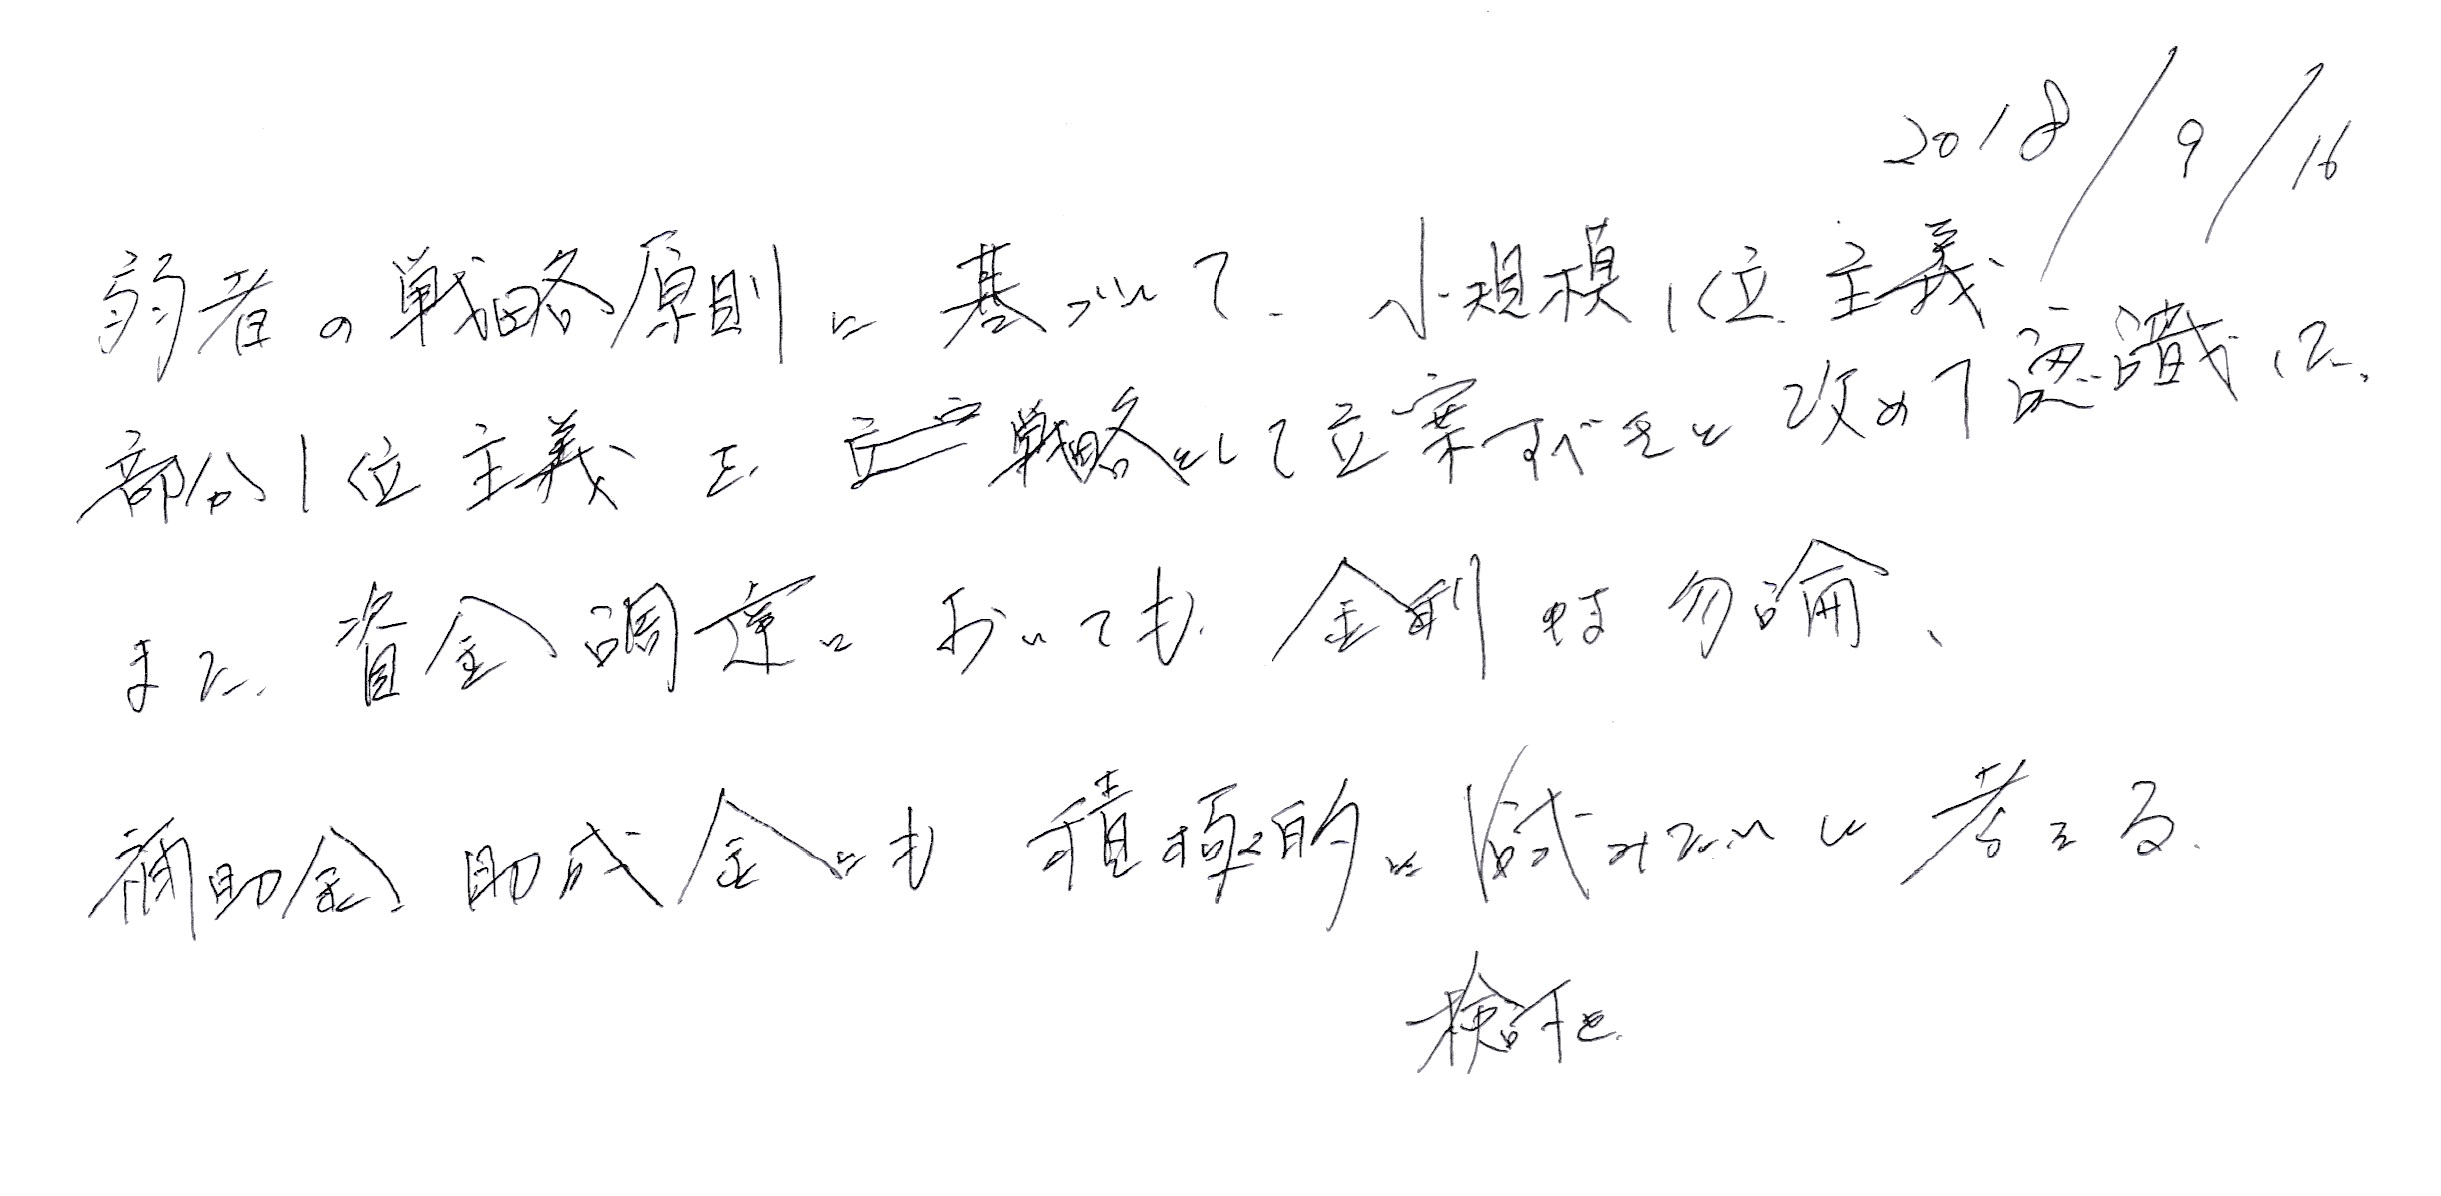 2018/9/16
弱者の戦略原則に基づいて、小規模1位主義
部分1位主義を、戦略として立案すべきと改めて認識した。
また、資金調達においても、金利は勿論、
補助金、助成金にも積極的に試みたいと考える。
検討を